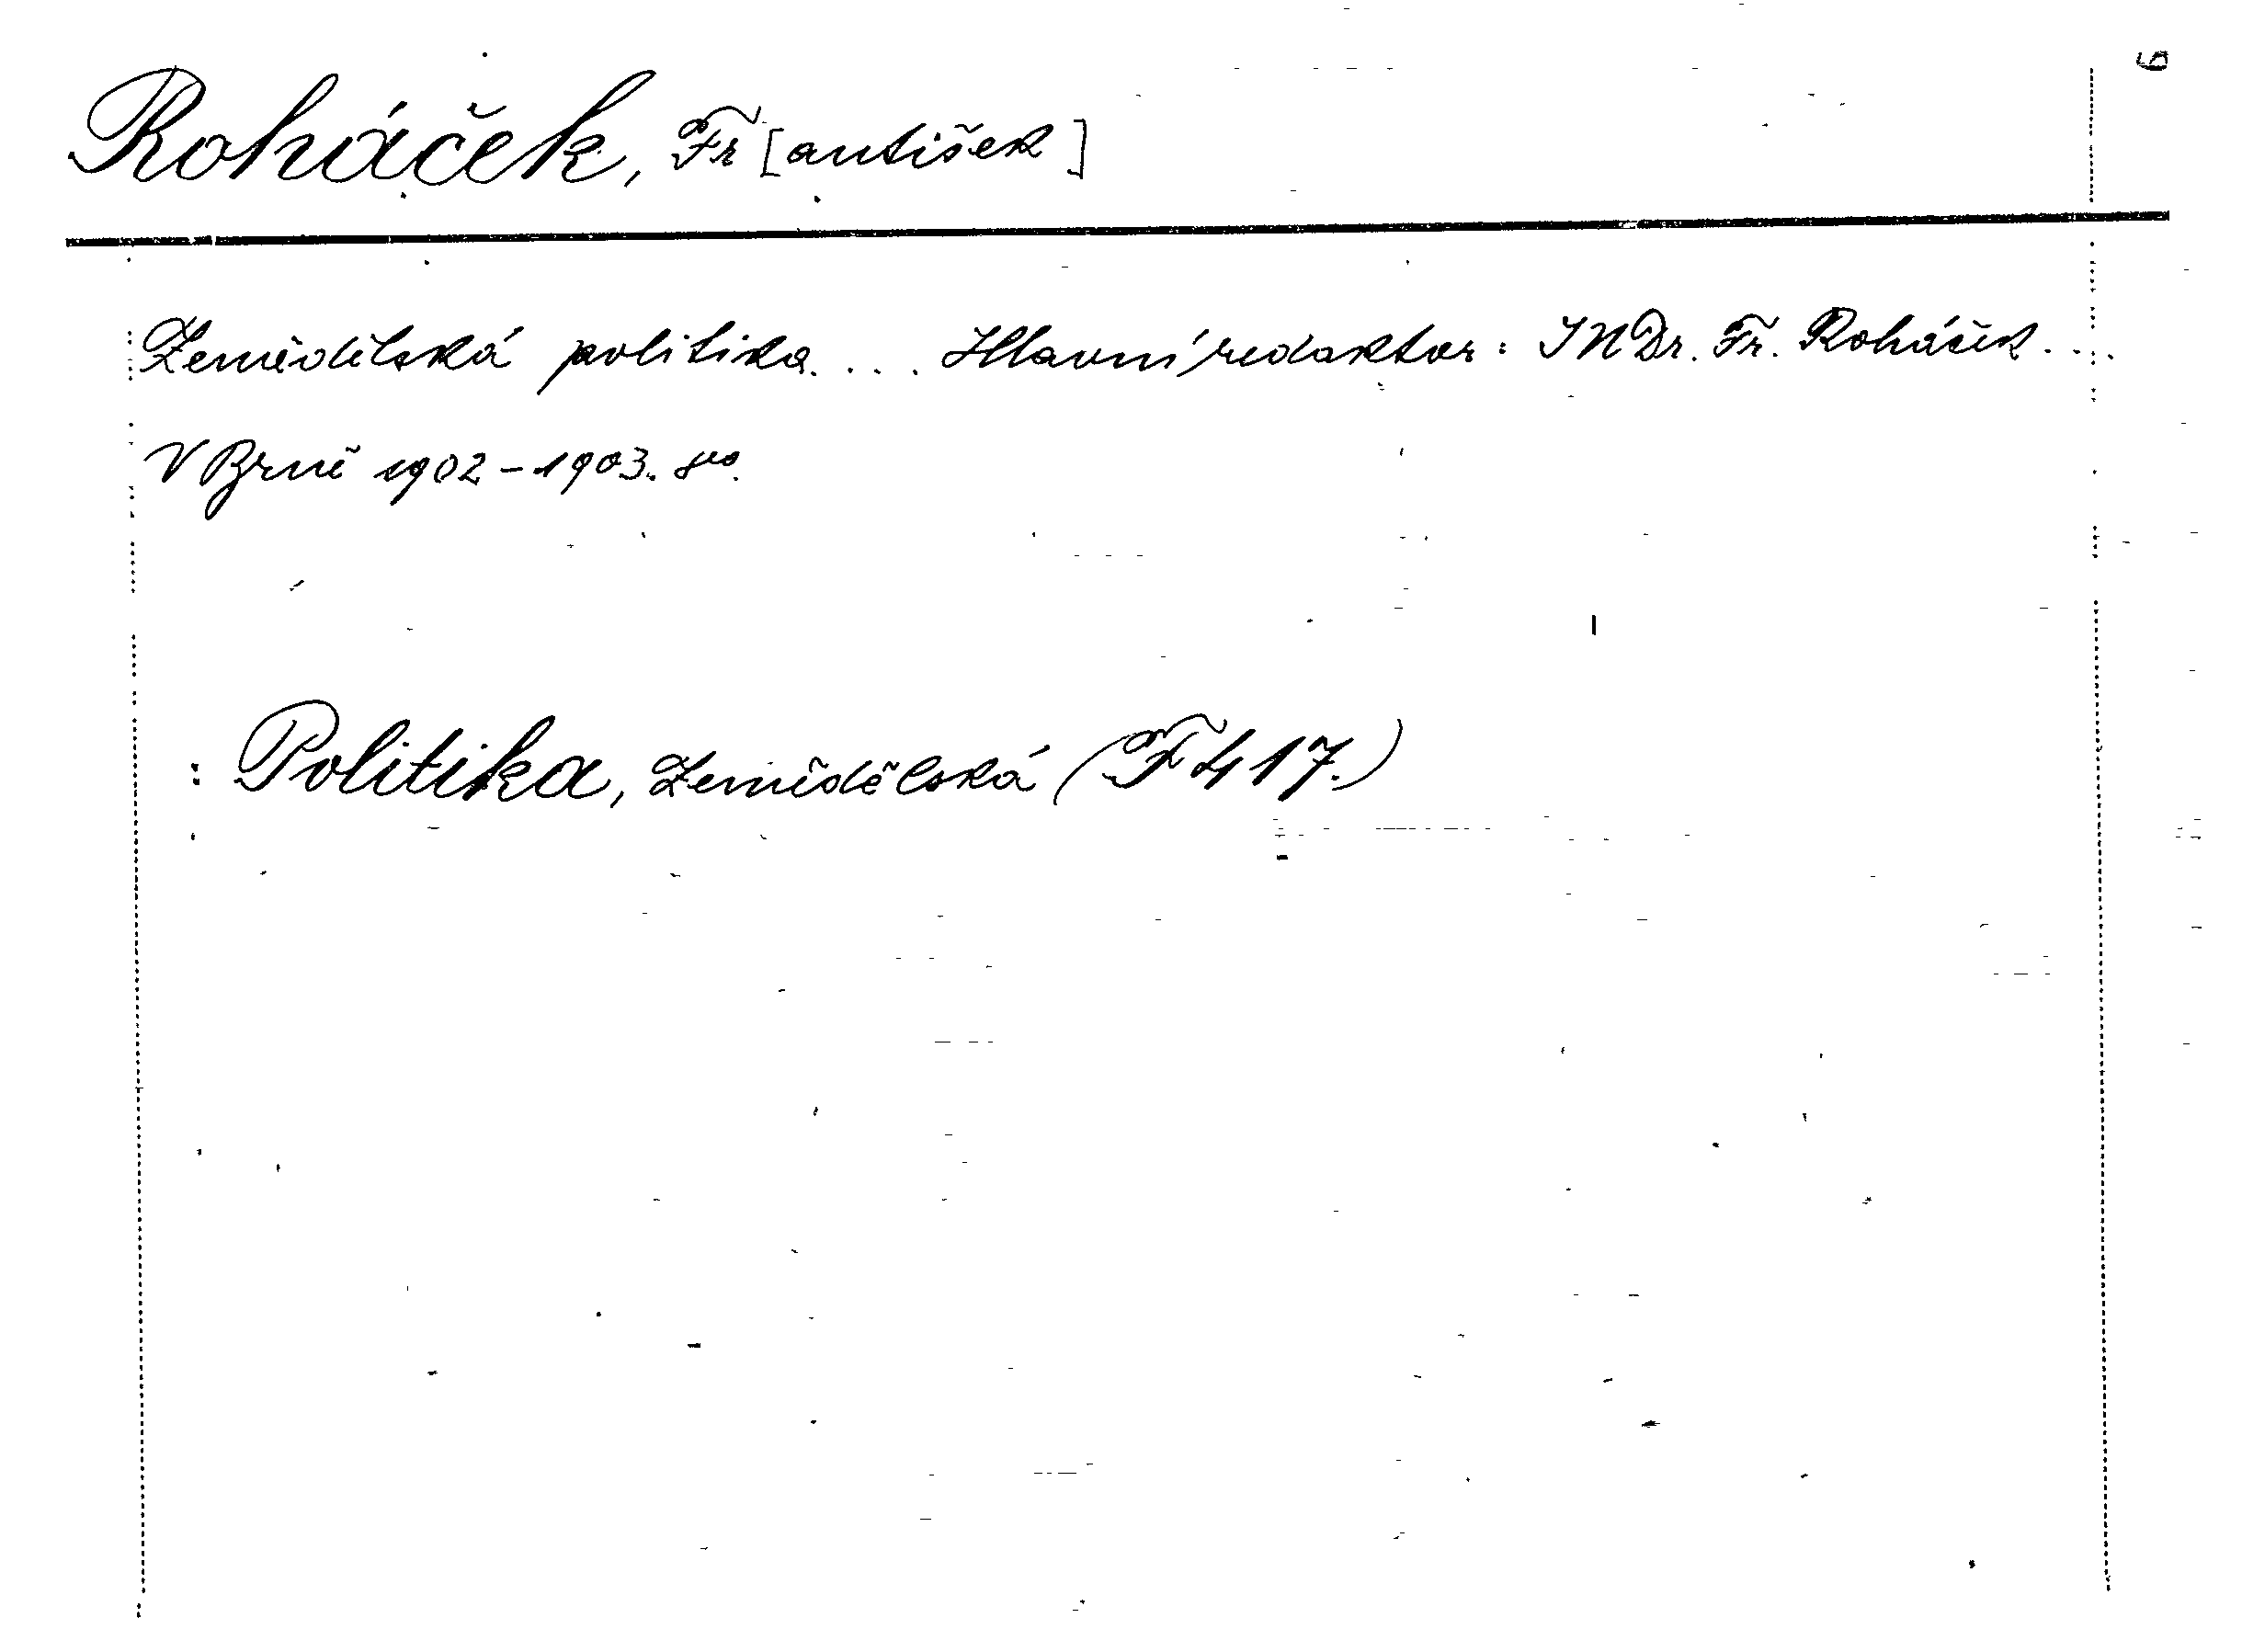 Roháček, Fr[antišek]
Zemědělská politika. ... Hlavní redaktor: JUDr. Fr. Roháček. ...
V Brně 1902-1903. 8vo.
: Politika, Zemědělská (F 417.)